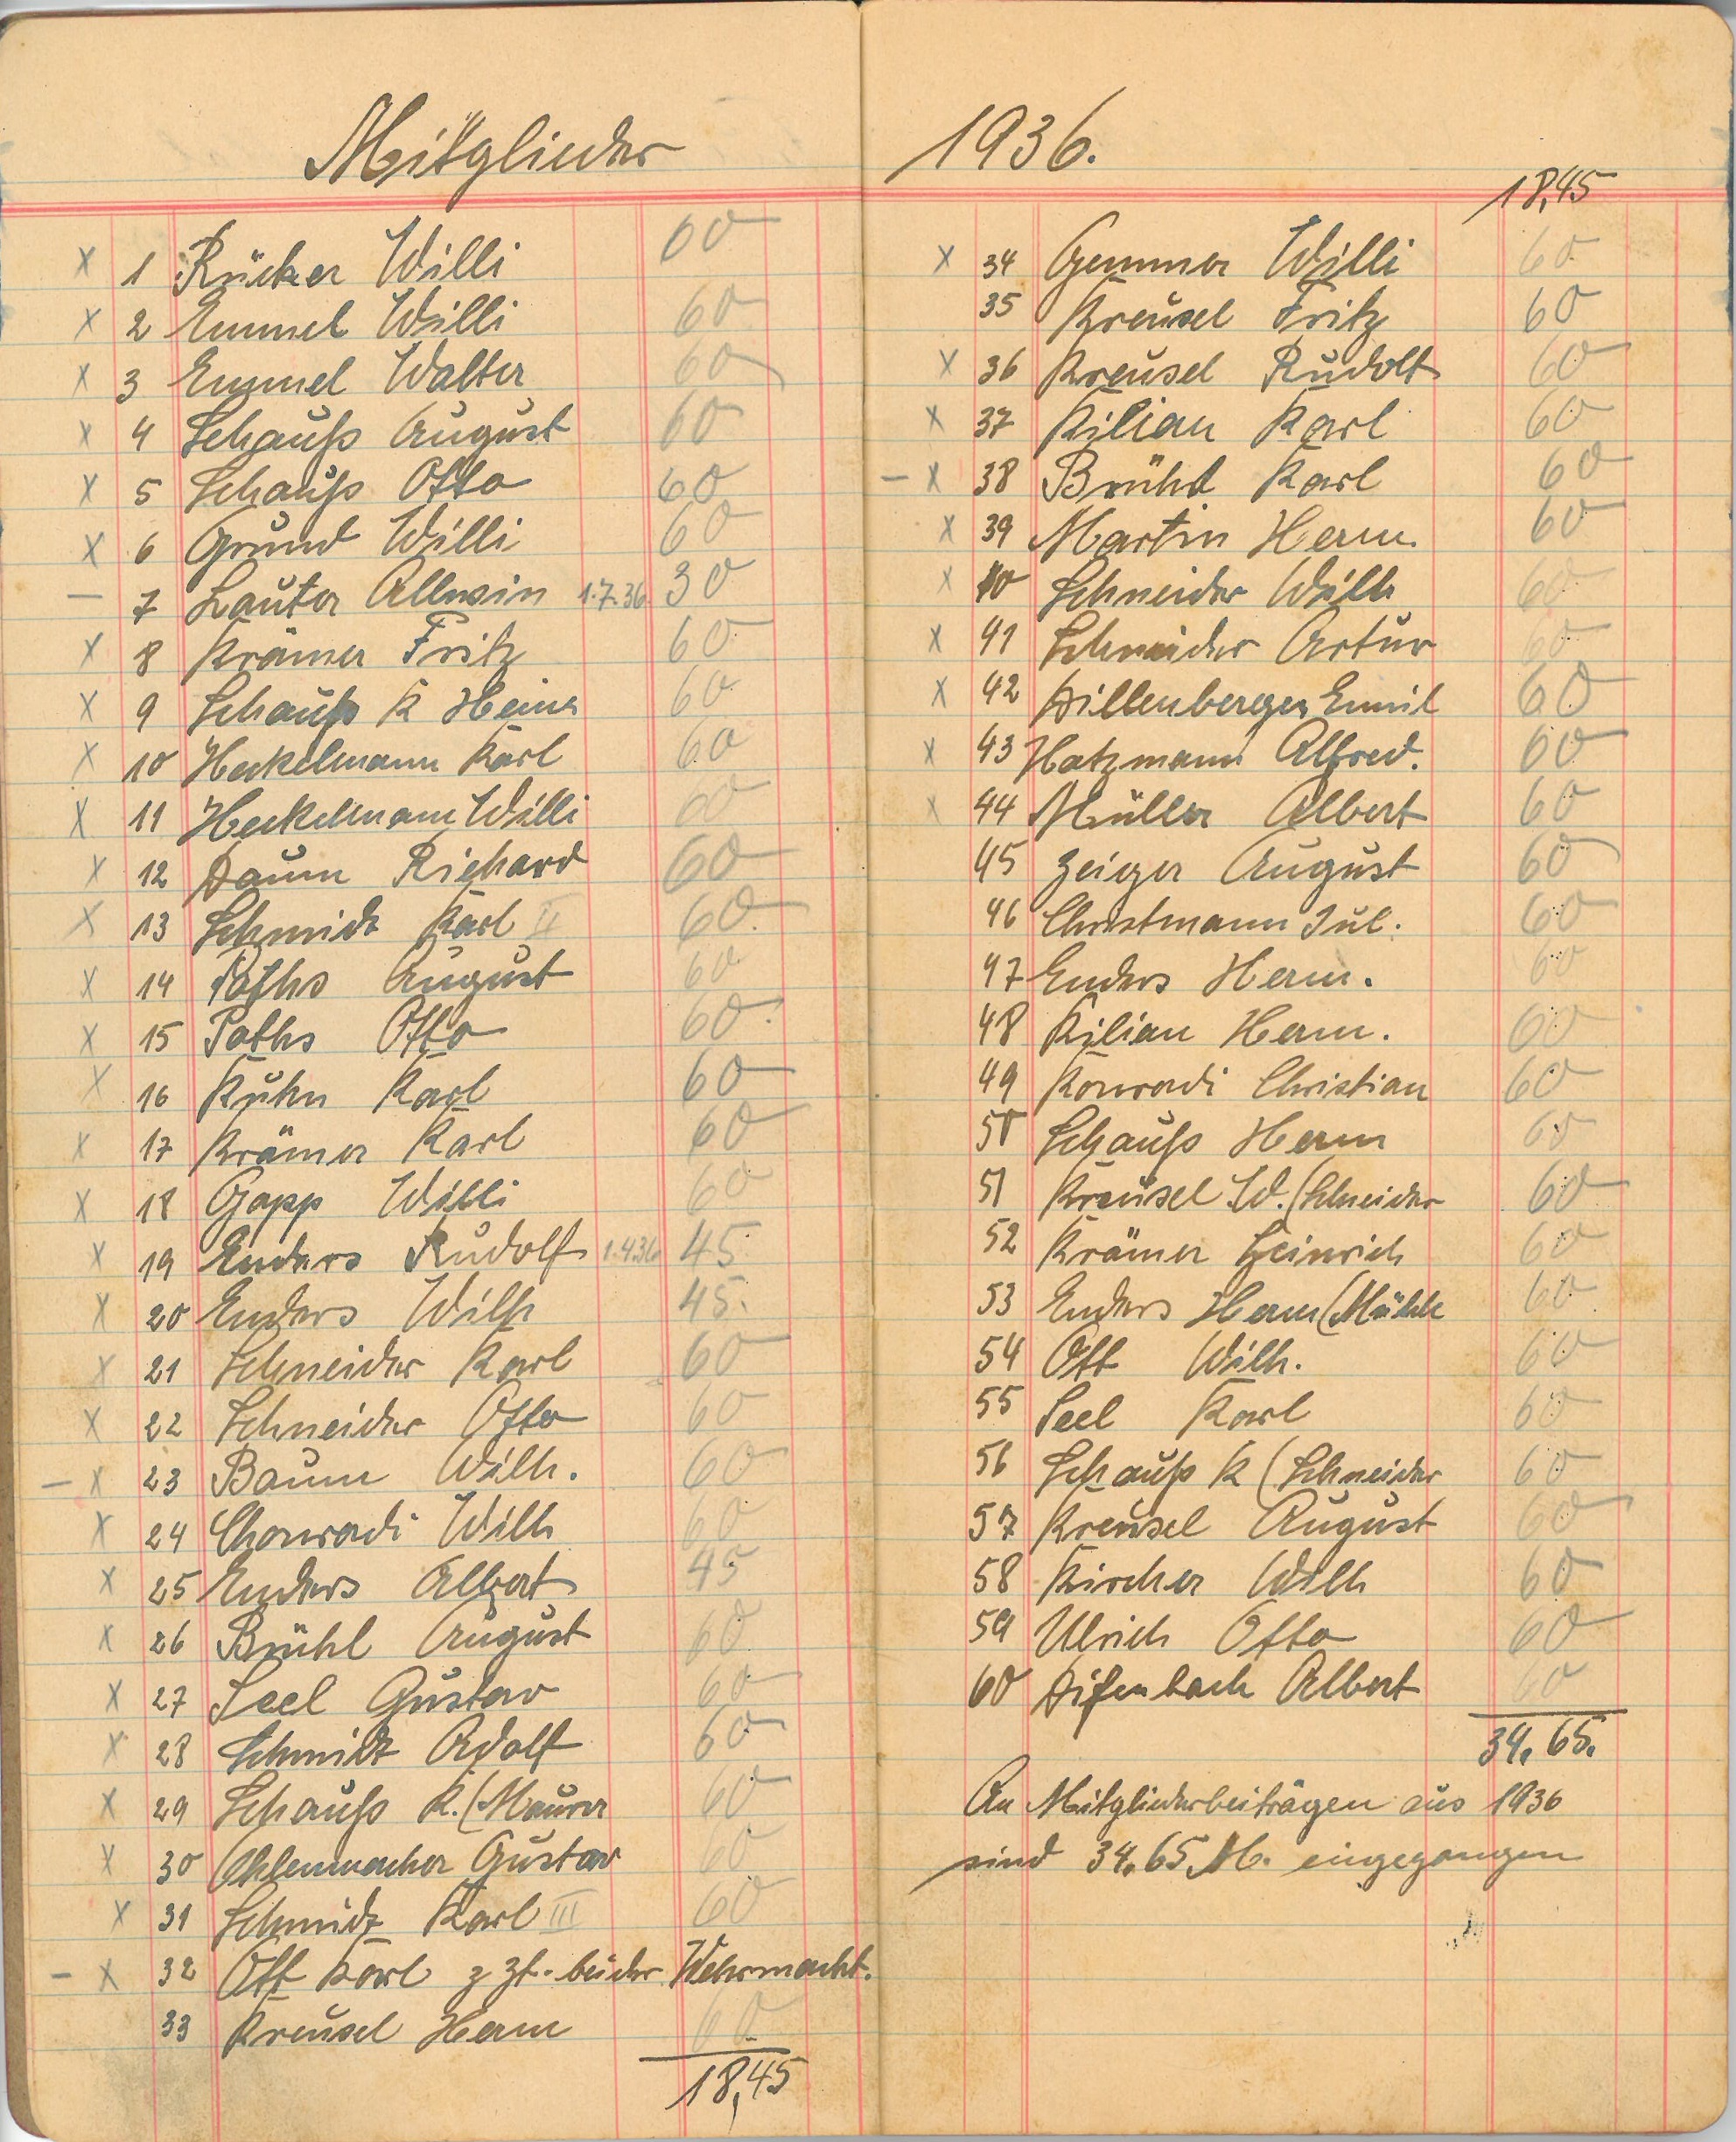 Mitglieder
x 1 Rücker Willi 60
x 2 Emmel Willi 60
x 3 Emmel Walter 60
x 4 Schauß August 60
x 5 Schauß Otto 60
x 6 Grund Willi 60
– 7 Lauter Allwin 1.7.36. 30
x 8 Krämer Fritz 60
x 9 Schauß K Heinr 60
x 10 Heckelmann Karl 60
x 11 Heckelmann Willi 60
x 12 Daum Richard 60
x 13 Schmidt Karl II 60
x 14 Paths August 60
x 15 Paths Otto 60
x 16 Kuhn Karl 60
x 17 Krämer Karl 60
x 18 Gapp Willi 60
x 19 Enders Rudolf 1.4.36 45
x 20 Enders Wilh 45.
x 21 Schneider Karl 60
x 22 Schneider Otto 60
– x 23 Baum Wilh. 60
x 24 Chonradi Wilh 60
x 25 Enders Albert 45
x 26 Brühl August 60
x 27 Seel Gustav 60
x 28 Schmidt Adolf 60
x 29 Schauß K. (Maurer 60
x 30 Ohlenmacher Gustav 60
x 31 Schmidt Karl III 60
– x 32 Ott Karl z Zt. bei der Wehrmacht.
33 Kreusel Herm 60
18,45
1936.
18,45
x 34 Gemmer Willi 60
35 Kreusel Fritz 60
x 36 Kreusel Rudolf 60
x 37 Kilian Karl 60
– x 38 Brühl Karl 60
x 39 Martin Herm. 60
x 40 Schneider Wilh 60
x 41 Schneider Artur 60
x 42 Dillenberger Emil 60
x 43 Hatzmann Alfred. 60
x 44 Müller Albert 60
45 Zeiger August 60
46 Christmann Jul. 60
47 Enders Herm. 60
48 Kilian Herm. 60
49 Konradi Christian 60
50 Schauß Herm 60
51 Kreusel W. (Schneider 60
52 Krämer Heinrich 60
53 Enders Herm (Mühle 60
54 Ott Wilh. 60
55 Seel Karl 60
56 Schauß K (Schneider 60
57 Kreusel August 60
58 Kircher Wilh 60
59 Ulrich Otto 60
60 Difenbach Albert 60
34.65.
An Mitgliederbeiträgen aus 1936
sind 34.65 M. eingegangen